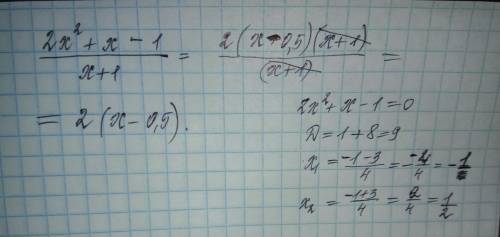 (2x² + x - 1)/(x+1) = 2(x-0,5)(x+1)/(x+1) =
= 2(x-0,5).
2x² + x - 1 = 0
D = 1 + 8 = 9
x₁ = (-1-3)/4 = -4/4 = -1
x₂ = (-1+3)/4 = 2/4 = 1/2